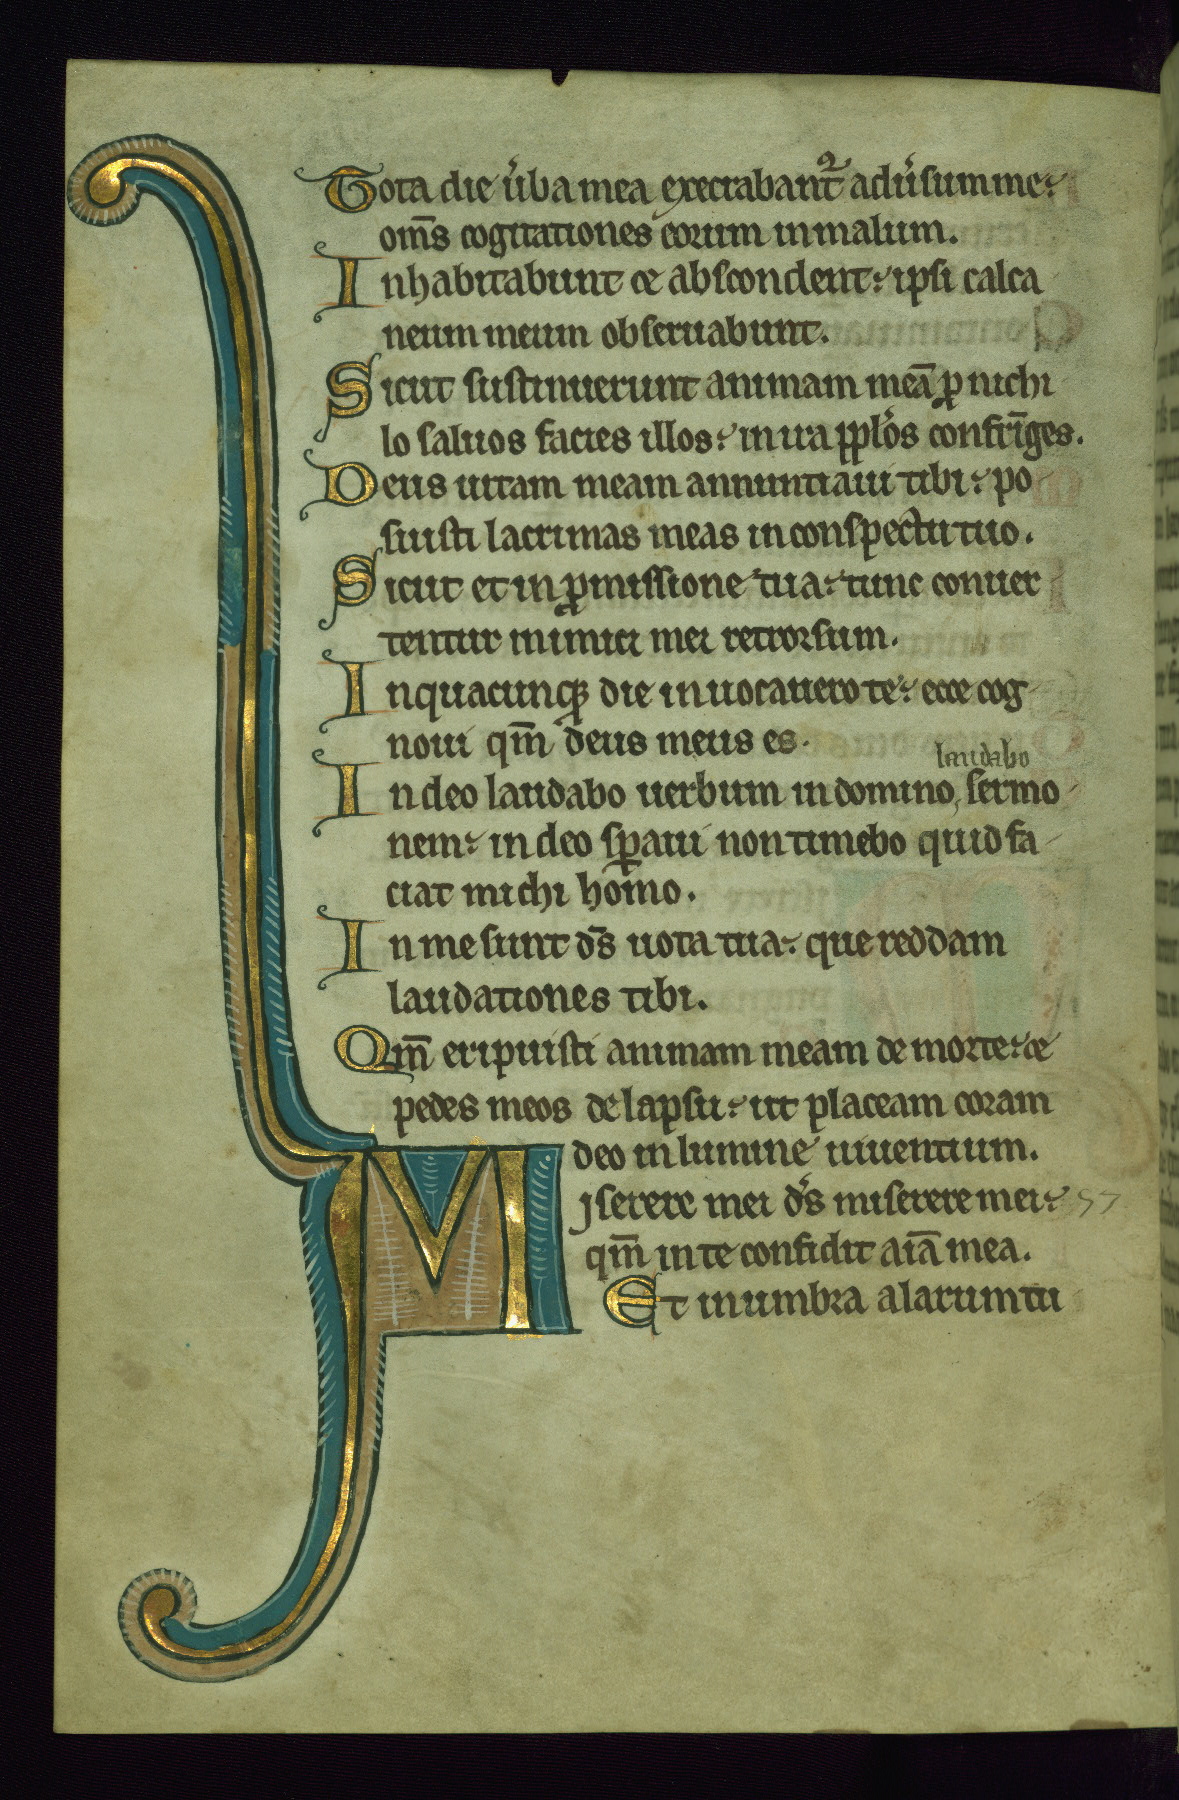 Tota die u̾ba mea execrabant᷑ adu̾sum me:
om̄s cogitationes eorum in malum.
Inhabitabunt ⁊ abscondent: ipsi calca
neum meum obseruabunt.
Sicut sustinuerunt animam meā ꝓ nichi
lo saluos facies illos: in ira ppl̾os confrīges.
Deus uitam meam annuntiaui tibi: po
suisti lacrimas meas in conspectu tuo.
Sicut et in ꝓmissione tua: tunc conuer
tentur inimici mei retrorsum.
In quacunqꝫ die inuocauero te: ecce cog
noui qm̄ deus meus es.
laudabo
In deo laudabo uerbum in domino, sermo
nem: in deo sꝑaui non timebo quid fa
ciat michi homo.
In me sunt ds̄ uota tua: que reddam
laudationes tibi.
Qm̄ eripuisti animam meam de morte: ⁊
pedes meos de lapsu: ut placeam coram
deo in lumine uiuentium.
Miserere mei ds̄ miserere mei: 57
qm̄ in te confidit aīa mea.
Et in umbra alarum tu